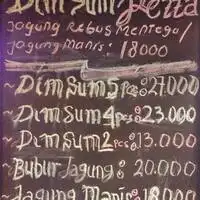 Dim Sum Letta
Jagung Rebus Mentega/
Jagung Manis : 18000
~ Dim Sum 5 Pcs : 27.000
~ Dim Sum 4 Pcs : 23.000
~ Dim Sum 2 Pcs : 13.000
~ Bubur Jagung : 20.000
~ Jagung Manis : 18.000